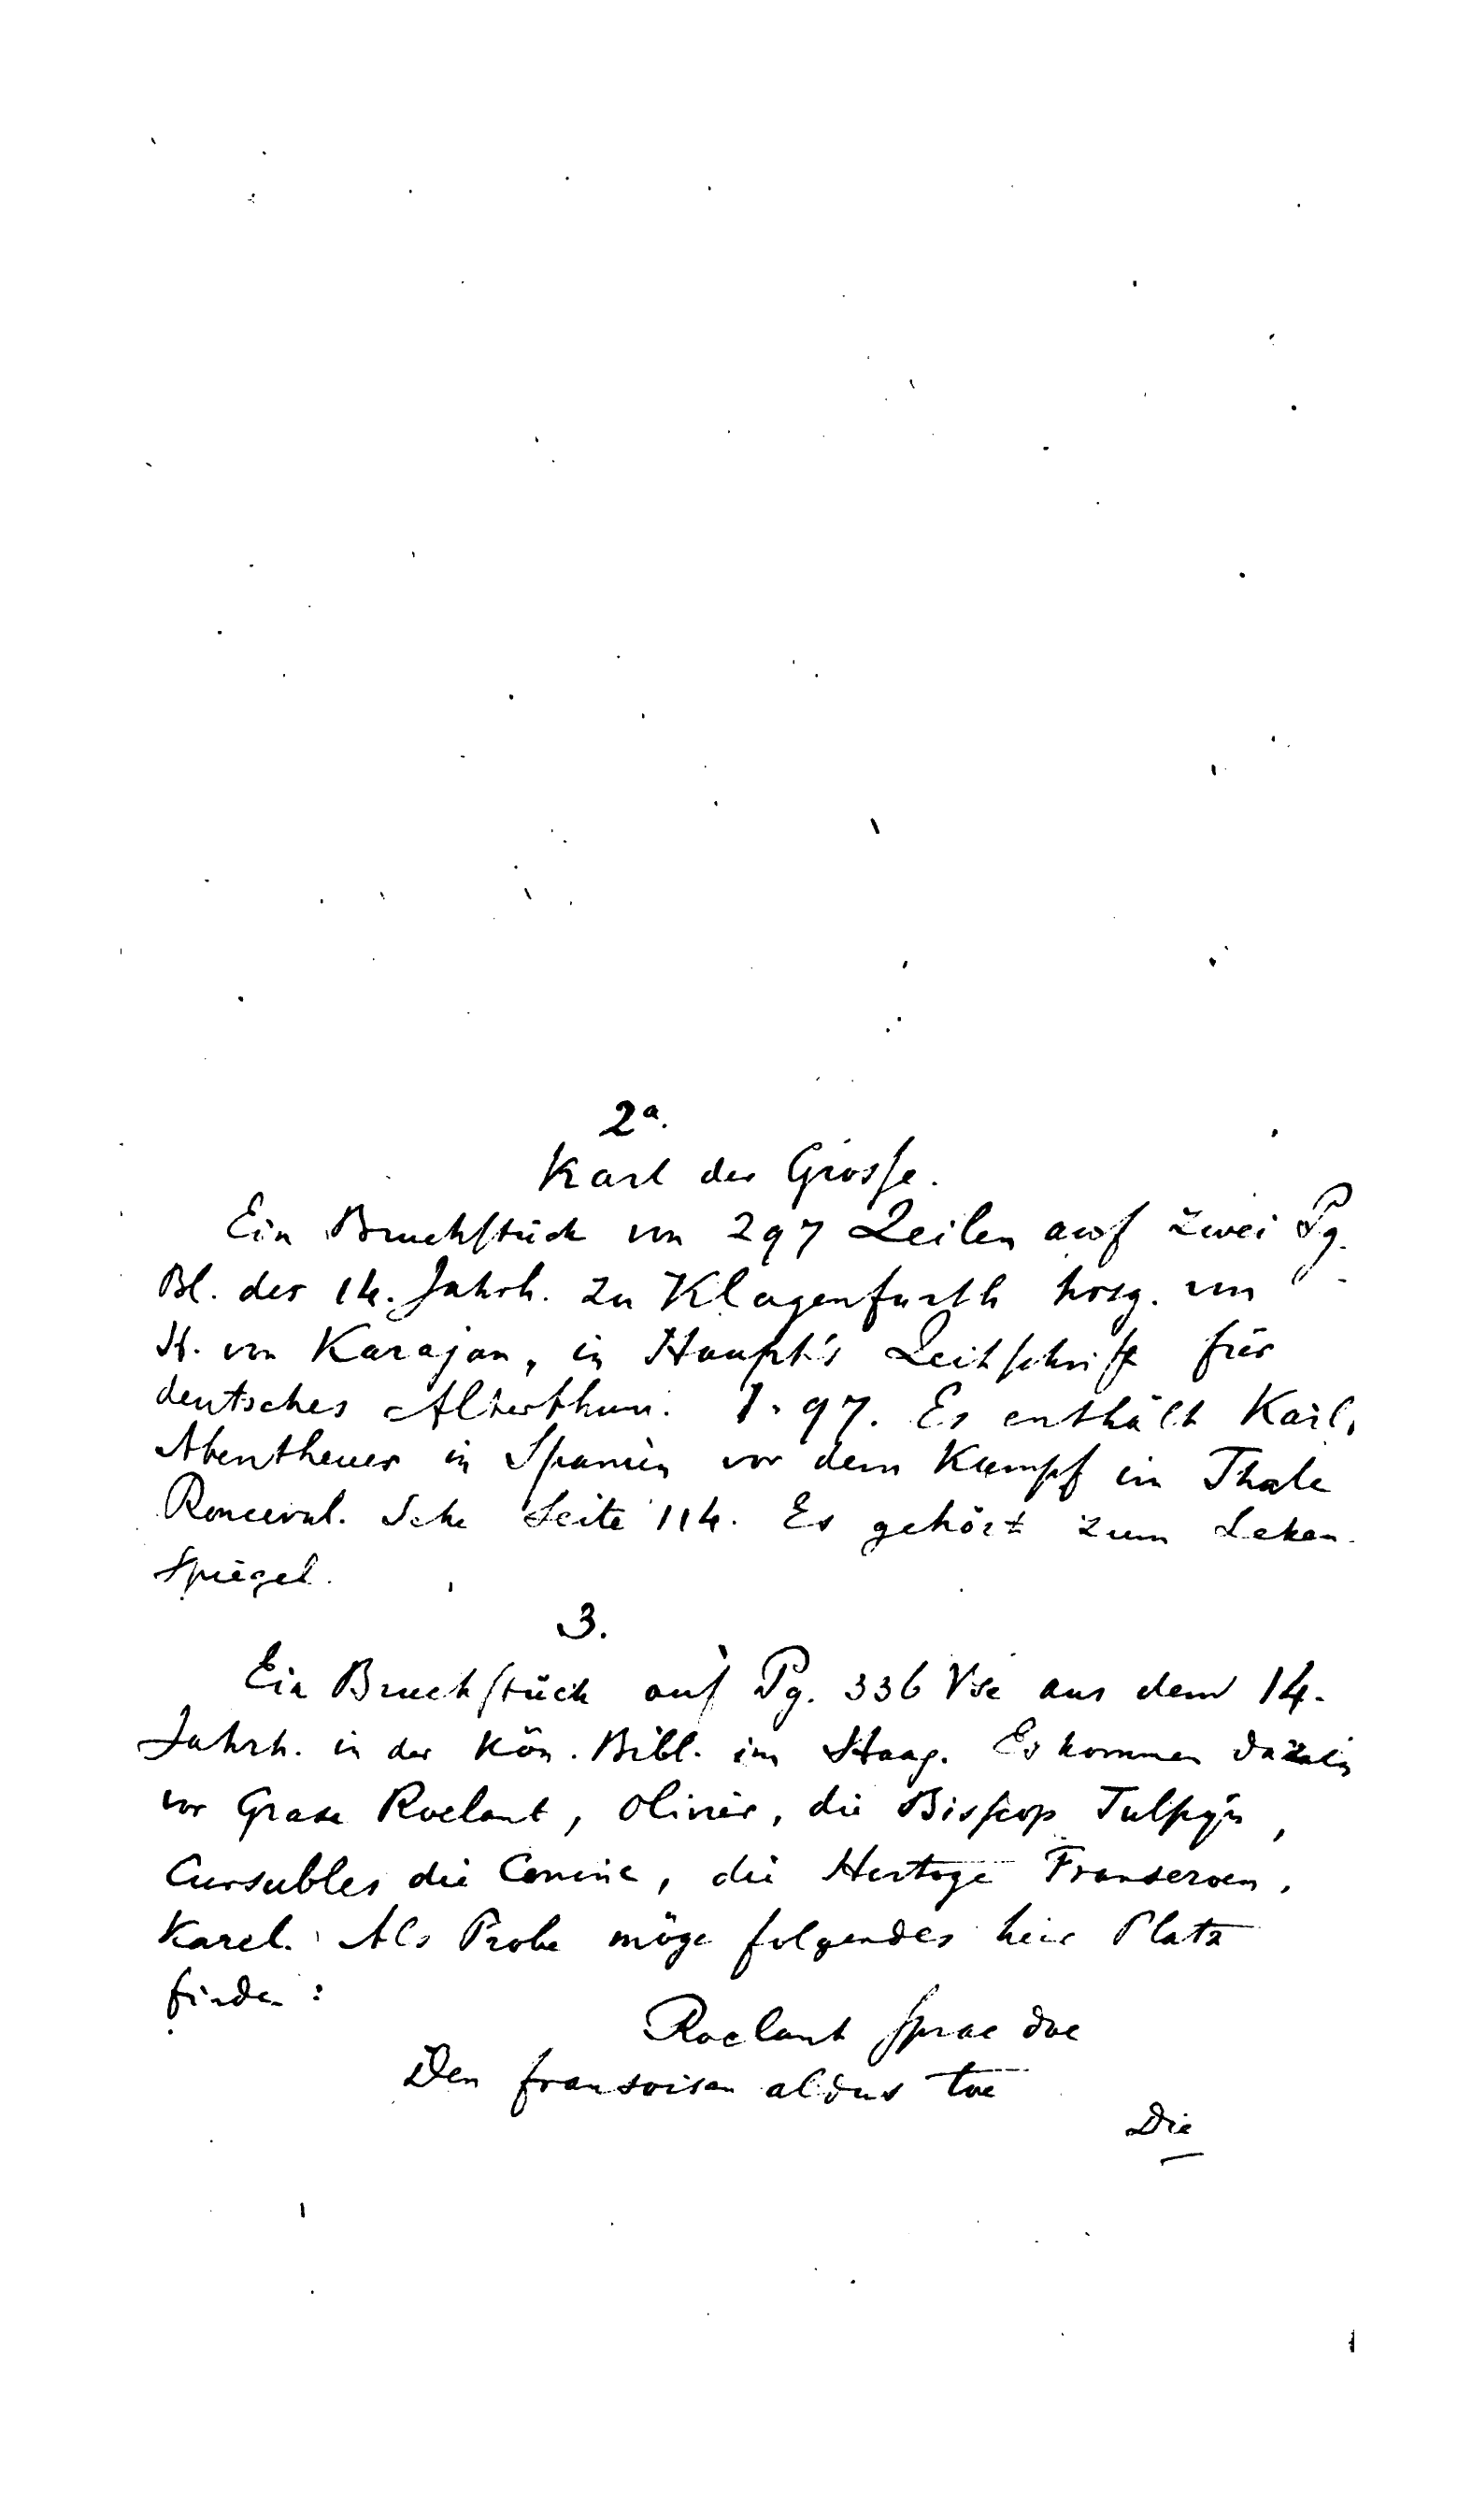 2a.
Karl der Grosse.
Ein Bruchstück von 297 Zeilen auf zwei Pg.
Bl. des 14. Jahrh. zu Klagenfurth hrsg. von
H. von Karajan, in Haupt's Zeitschrift für
deutsches Alterthum. 1. 97. Es enthält Karls
Abentheuer in Spanien vor dem Kampf im Thale
Ronceval. Sehe Seite 114. Es gehört zum Leken
Spiegel.
3.
Ein Bruchstück auf Pg. 336 Vse aus dem 14.
Jahrh. in der Kön. Bibl. im Haag. Es kommen darin
vor Grave Roelant, Olivier, die Bisscop Tulpyn,
Cursubles die Coninc, die Hertoge Fransoroen,
Karel. Als Probe möge folgendes hier Platz
finden:
Roelant sprac doe
Den fransoisen aldus toe
Die